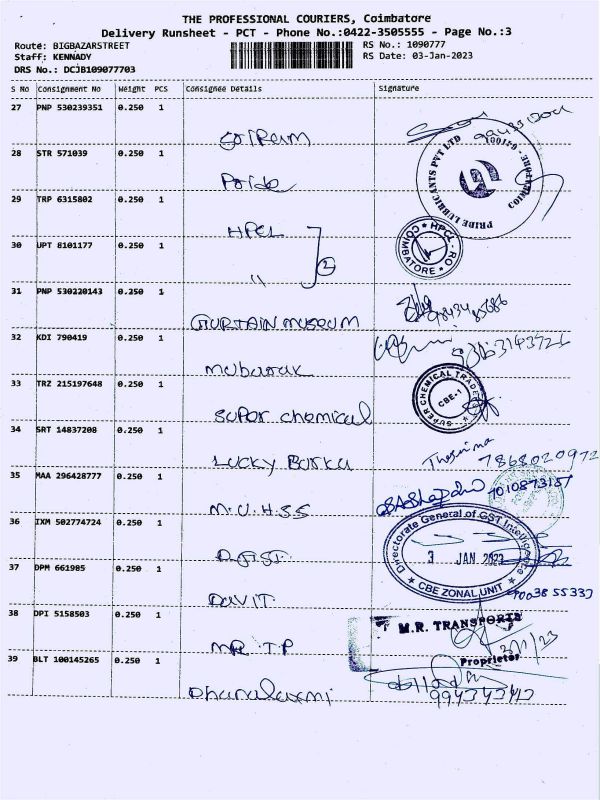 THE PROFESSIONAL COURIERS, Coimbatore
Delivery Runsheet - PCT - Phone No.:0422-3505555 - Page No.:3
Route: BIGBAZARSTREET
Staff: KENNADY
DRS No.: DCJB109077703
RS No.: 1090777
RS Date: 03-Jan-2023
S No Consignment No Weight PCS Consignee Details Signature
27 PNP 530239351 0.250 1
Sriram
28 STR 571039 0.250 1
Pride
PRIDE LUBRICANTS PVT LTD COIMBATORE - 641001
29 TRP 6315802 0.250 1
HPCL
HPCL - RO COIMBATORE
30 UPT 8101177 0.250 1
" 2
31 PNP 530220143 0.250 1
CURTAIN MUSEUM
32 KDI 790419 0.250 1
Mubarak
33 TRZ 215197648 0.250 1
Super chemical
SUPER CHEMICAL TRADERS CBE-1
34 SRT 14837208 0.250 1
Lucky Barka
7868020972
35 MAA 296428777 0.250 1
M.U.H.SS
7010873157
36 IXM 502774724 0.250 1
Directorate General of GST Intelligence
3 JAN 2023
CBE ZONAL UNIT
37 DPM 661985 0.250 1
38 DPI 5158503 0.250 1
MR.T.P
M.R. TRANSPORTS
Proprietor
3/1/23
39 BLT 100145265 0.250 1
Dhanalaxmi